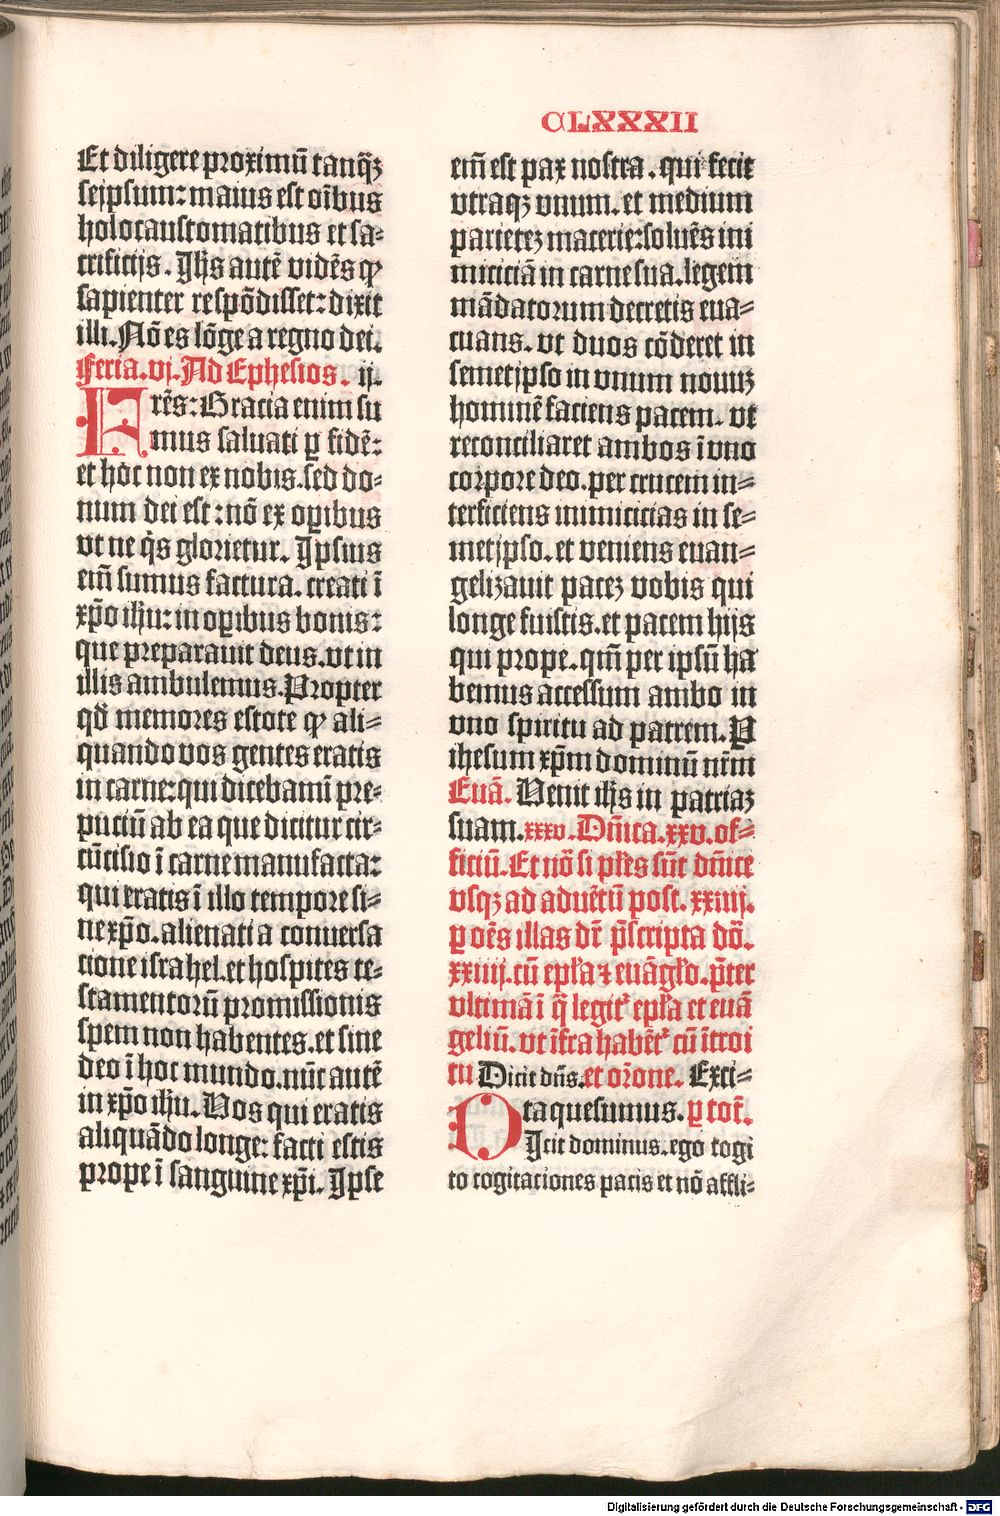 CLXXXII
Et diligere proximū tanqꝫ
seipsum: maius est oībus
holocaustomatibus et sa⸗
crificijs. Jhs autē vidēs ꝙ
sapienter respōdisset: dixit
illi. Nō es lōge a regno dei.
Feria. vj. Ad Ephesios. ij.
Frēs: Gracia enim su
mus saluati ꝑ fidē:
et hoc non ex nobis. sed do⸗
num dei est: nō ex oꝑibus
vt ne q̇s glorietur. Jpsius
em̄ sumus factura. creati ī
xp̄o ihu: in oꝑibus bonis:
que preparauit deus. vt in
illis ambulemus. Propter
qđ memores estote ꝙ ali⸗
quando vos gentes eratis
in carne: qui dicebamī pre⸗
puciū ab ea que dicitur cir⸗
cūcisio ī carne manufacta:
qui eratis ī illo tempore si⸗
ne xp̄o. alienati a conuersa
cione israhel. et hospites te⸗
stamentorū promissionis
spem non habentes. et sine
deo ī hoc mundo. nūc autē
in xp̄o ihu. Vos qui eratis
aliquādo longe: facti estis
prope ī sanguine xp̄i. Jpse
em̄ est pax nostra. qui fecit
vtraqꝫ vnum. et medium
parietеꝫ macerie: soluēs ini
miciciā in carne sua. legem
mādatorum decretis eua⸗
cuans. vt duos cōderet in
semetjpso in vnum nouuꝫ
hominē faciens pacem. vt
reconciliaret ambos ī vno
corpore deo. per crucem in⸗
terficiens inimicicias in se⸗
metjpso. et veniens euan⸗
gelizauit paceꝫ vobis qui
longe fuistis. et pacem hijs
qui prope. qm̄ per ipsū ha
bemus accessum ambo in
vno spiritu ad patrem. P
ihesum xp̄m dominū nr̄m
Euā. Venit ihs in patriaꝫ
suam. xxxv. Dn̄ica. xxv. of⸗
ficiū. Et nō si pl̄es sūt dn̄ice
vsqꝫ ad aduētū post. xxiiij.
ꝑ oēs illas dr̄ p̄scripta dō.
xxiiij. cū epl̄a ⁊ euāgl̄o. p̄ter
vltimā ī q̄ legit᷑ epl̄a et euā
geliū. vt īfra habēt᷑ cū ītroi
tu Dicit dn̄s. et or̄one. Exci⸗
ta quesumus. ꝑ tot̄.
DJcit dominus. ego cogi
to cogitaciones pacis et nō affli⸗
Digitalisierung gefördert durch die Deutsche Forschungsgemeinschaft - DFG